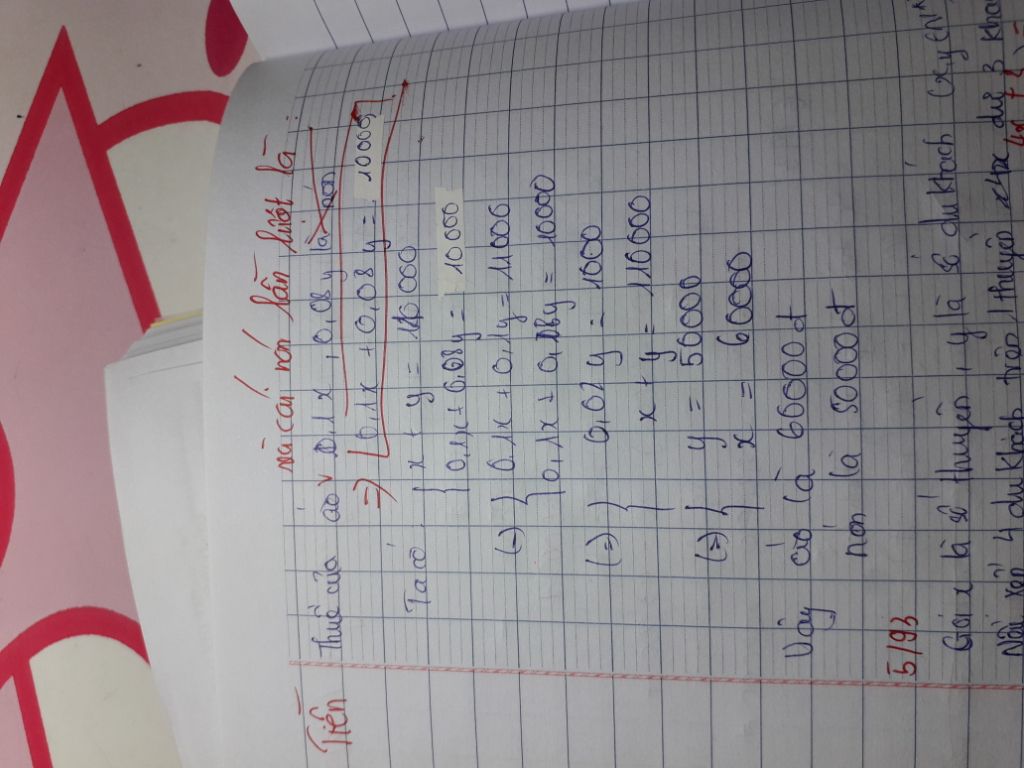 Tiền thuế của áo và cái nón lần lượt là :
0,1x , 0,08y là nón
=> 0,1x + 0,08y = 10000
Ta có { x + y = 110 000
0,1x + 0,08y = 10000
(=) { 0,1x + 0,1y = 11000
0,1x + 0,08y = 10000
(=) { 0,02y = 1000
x + y = 110000
(=) { y = 50000
x = 60000
Vậy áo là 60000đ
nón là 50000đ
5/93
Gọi x là số thuyền , y là số du khách (x,y ∈ N*
Nếu xếp 4 du khách trên 1 thuyền dư 3 khách